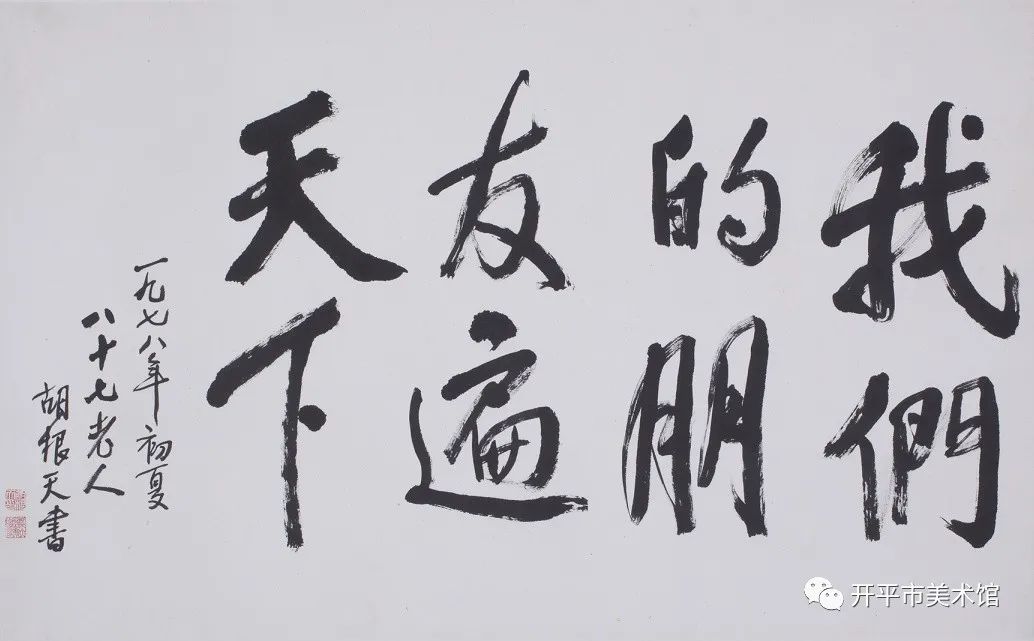 我們
的朋
友遍
天下
一九七八年初夏
八十七老人
胡根天書
开平市美术馆